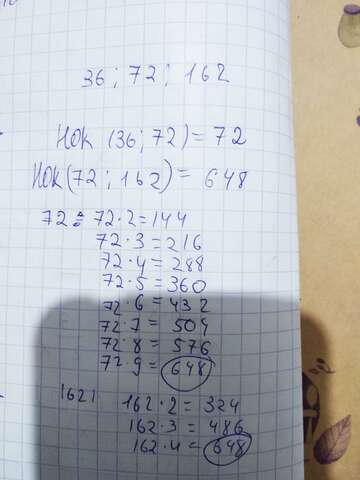 36 ; 72 ; 162
НОК (36 ; 72) = 72
НОК (72 ; 162) = 648
72: 72·2=144
72·3=216
72·4=288
72·5=360
72·6=432
72·7=504
72·8=576
72·9=648
162: 162·2=324
162·3=486
162·4=648